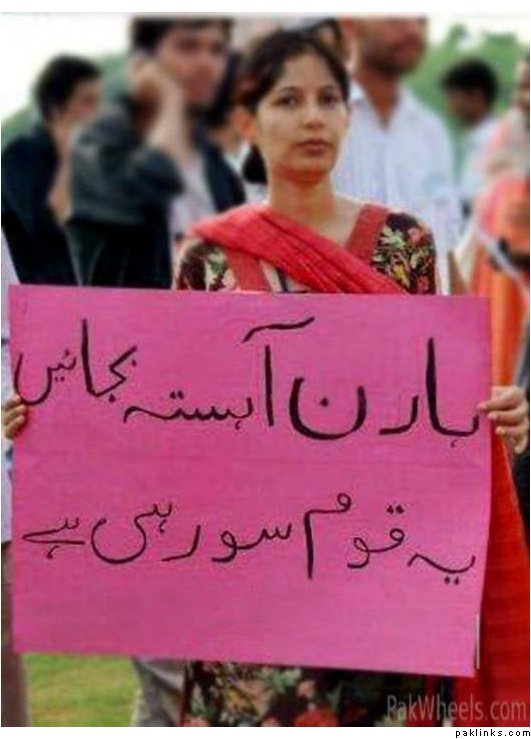 ہارن آہستہ بجائیں
یہ قوم سو رہی ہے
PakWheels.com
paklinks.com